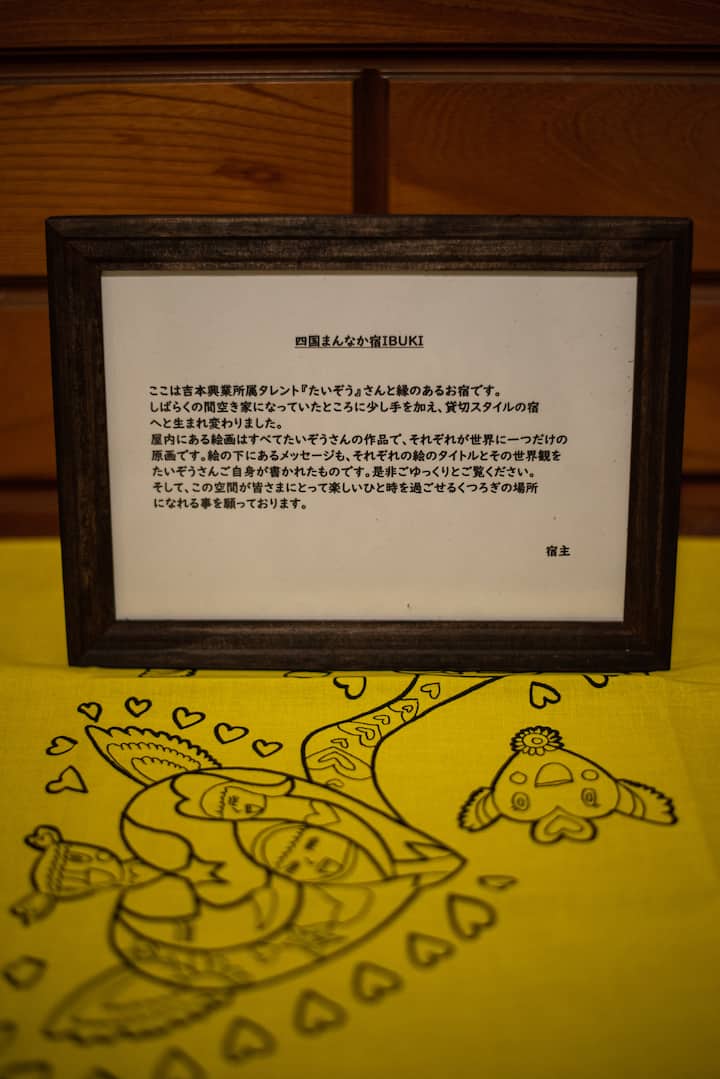 四国まんなか宿IBUKI
ここは吉本興業所属タレント『たいぞう』さんと縁のあるお宿です。
しばらくの間空き家になっていたところに少し手を加え、貸切スタイルの宿
へと生まれ変わりました。
屋内にある絵画はすべてたいぞうさんの作品で、それぞれが世界に一つだけの
原画です。絵の下にあるメッセージも、それぞれの絵のタイトルとその世界観を
たいぞうさんご自身が書かれたものです。是非ごゆっくりとご覧ください。
そして、この空間が皆さまにとって楽しいひと時を過ごせるくつろぎの場所
になれる事を願っております。
宿主